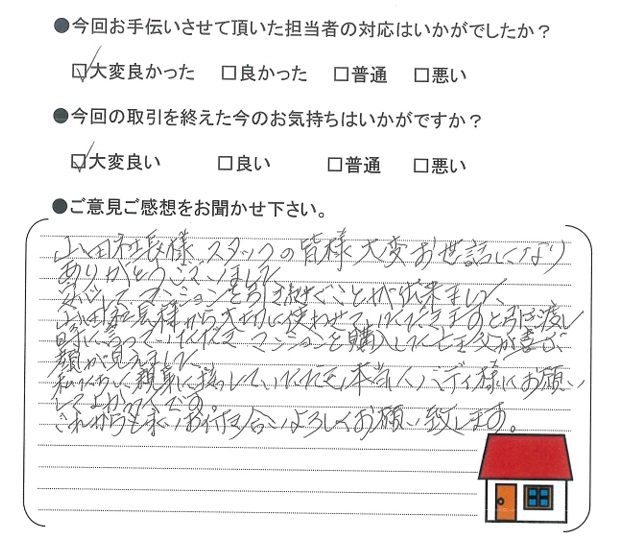 ●今回お手伝いさせて頂いた担当者の対応はいかがでしたか？
☑大変良かった □良かった □普通 □悪い
●今回の取引を終えた今のお気持ちはいかがですか？
☑大変良い □良い □普通 □悪い
●ご意見ご感想をお聞かせ下さい。
山田社長様、スタッフの皆様 大変お世話になり
ありがとうございました
安心してマンションを引き継ぐことが出来ました、
山田社長様から大切に使わせていただきますと引き渡し
時に言っていただき マンションを購入した亡き父が喜ぶ
顔が見えました、
私たちに親身に接していただき 本当にバディ様にお願い
してよかったです。
これからも末いお付き合いよろしくお願い致します。